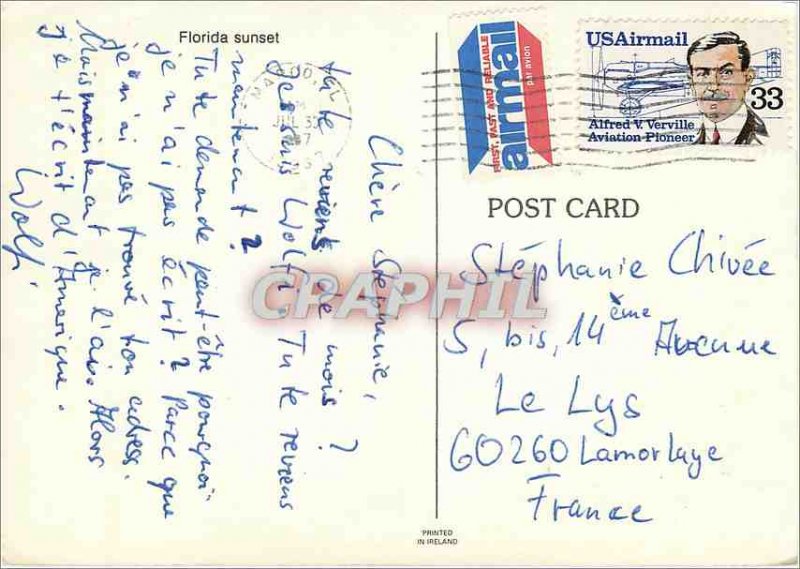 Florida sunset
Chère Stéphanie,
ta te reviens de mois ?
Je suis Wolfi. Tu te reviens
maintenant?
Tu te demande peut-être pourquoi
je n'ai pas écrit? Parce que
je n'ai pas trouvé ton adress.
Mais maintenant je l'ai. Alors
je t'écrit d'Amerique.
Wolfi
FIRST, FAST AND RELIABLE
airmail
par avion
USAirmail
33
Alfred V. Verville
Aviation Pioneer
POST CARD
Stéphanie Chivée
5, bis, 14ème Avenue
Le Lys
60260 Lamorlaye
France
CPAPHIL
PRINTED
IN IRELAND